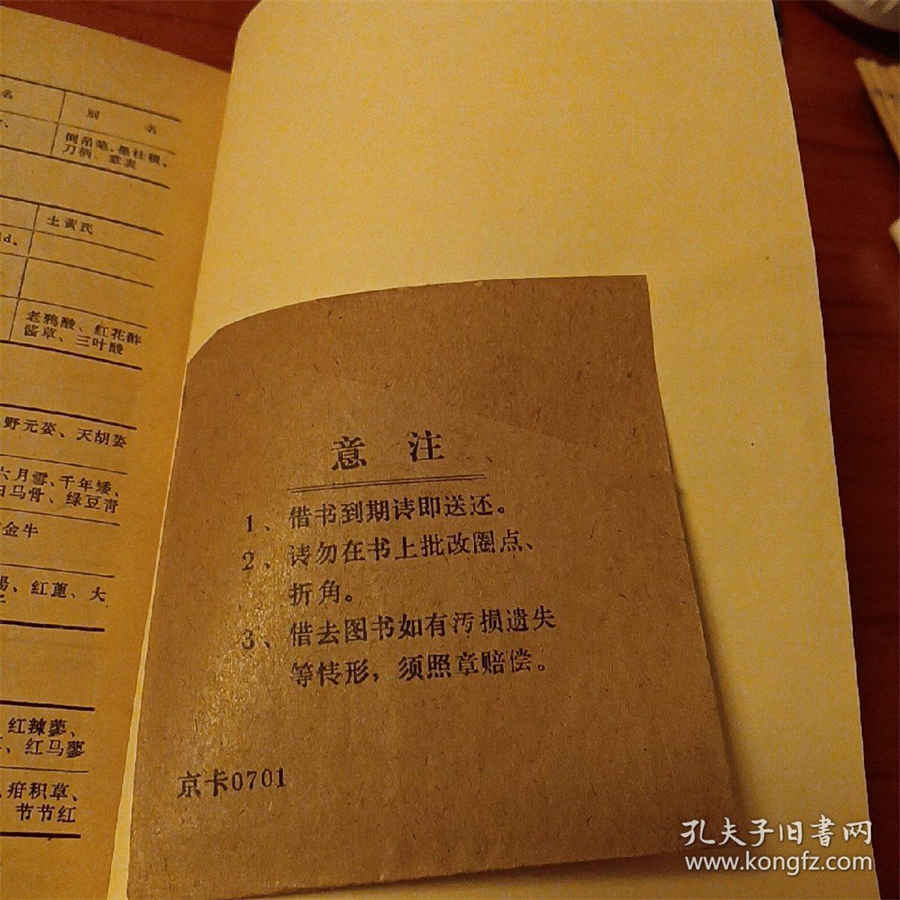 名
别 名
倒吊笔、墨柱根、
刀柄
土黄芪
ld.
老鸦酸、红花酢
酱草、三叶酸
野元荽、天胡荽
六月雪、千年矮、
白马骨、绿豆青
金牛
红蓖、大
红辣蓼、
红马蓼
疳积草、
节节红
意 注
1、借书到期请即送还。
2、请勿在书上批改圈点、
折角。
3、借去图书如有污损遗失
等情形，须照章赔偿。
京卡0701
孔夫子旧书网
www.kongfz.com